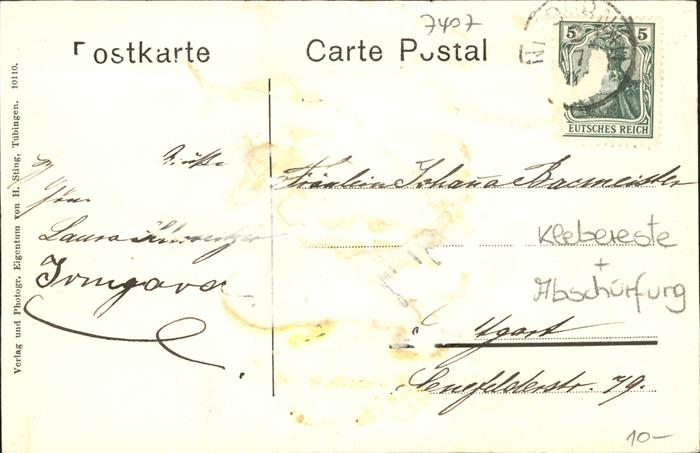 7407
Postkarte
Carte Postal
5 5
EUTSCHES REICH
Verlag und Photogr. Eigentum von H. Sting, Tübingen. 10110.
Grüße
Laura
Irmgard
Fräulein Johana Baumeister
Klebereste
+
Abschürfung
ttgart
Senefelderstr. 79.
10-